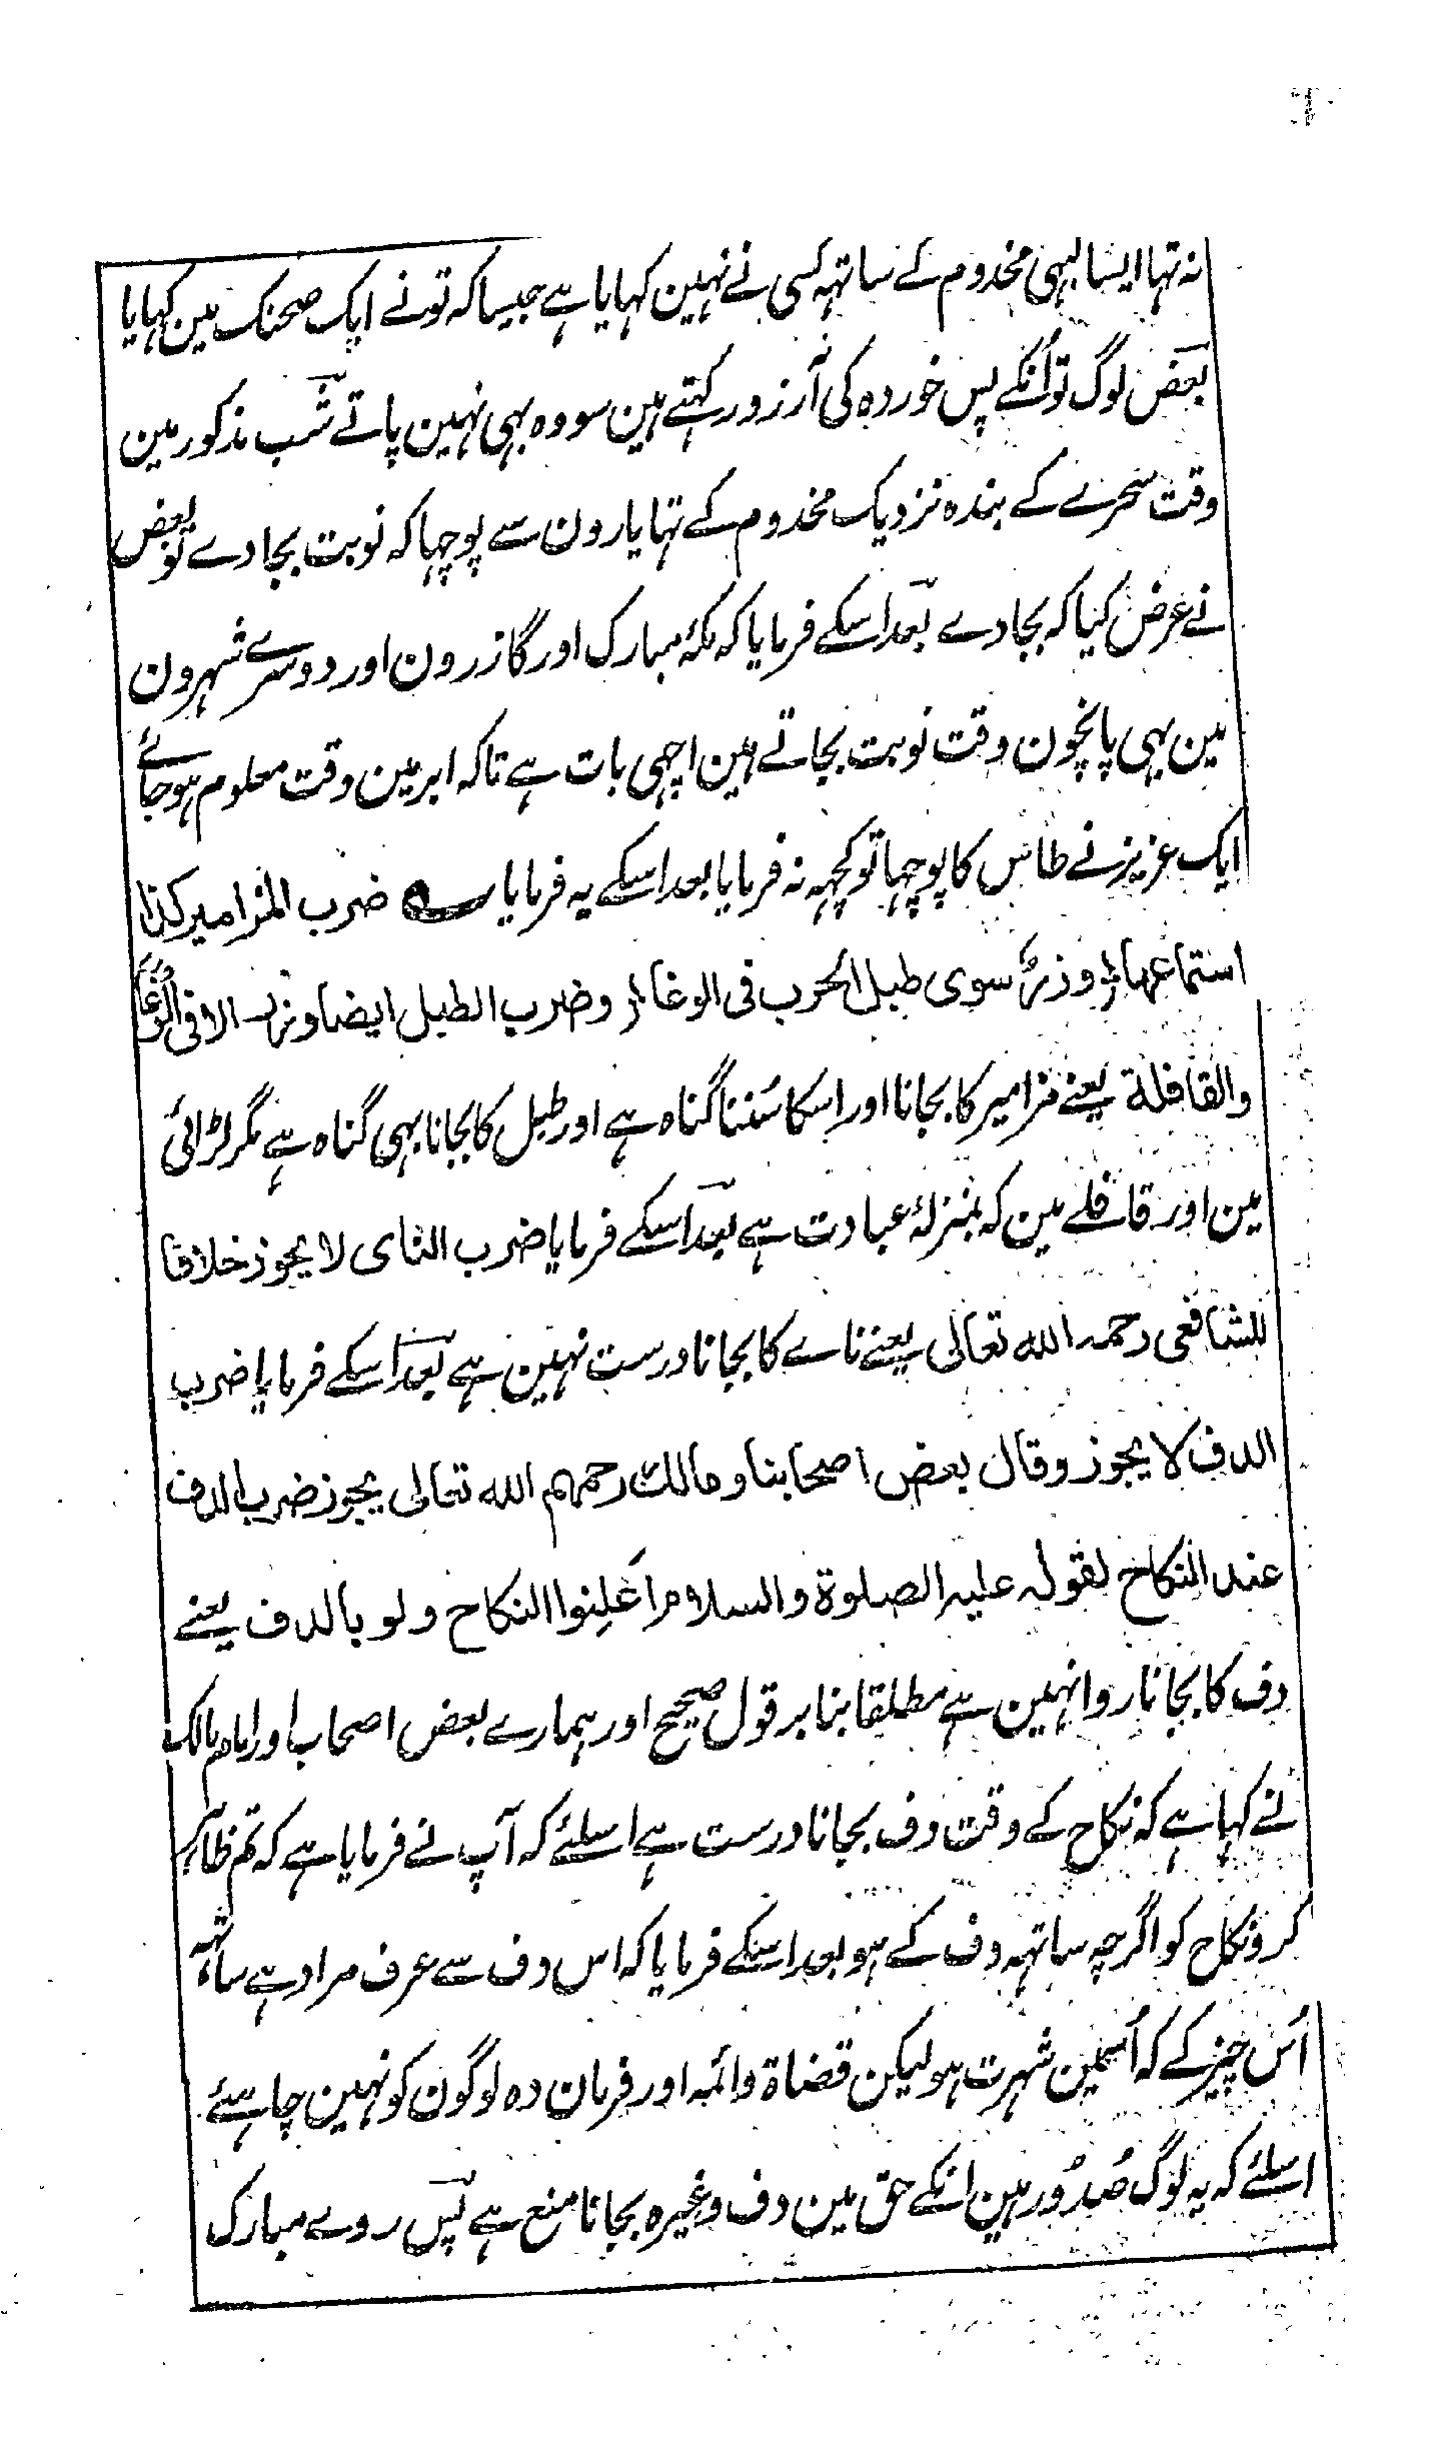 نہ تہا ایسا کبہی مخدوم کے ساتہہ کسی نے نہین کہایا ہے جیسا کہ تونے ایک صحنک مین کہایا
بعض لوگ تو اُنکے پس خوردہ کی آرزو رکہتے ہین سو وہ بہی نہین پاتے شب مذکور مین
وقت سحرے کے بندہ نزدیک مخدوم کے تہا یارون سے پوچہا کہ نوبت بجادے تو بعض
نے عرض کیا کہ بجادے بعد اسکے فرمایا کہ مکۂ مبارک اور گازرون اور دوسرے شہرون
مین بہی پانچون وقت نوبت بجاتے ہین اچہی بات ہے تاکہ ابر مین وقت معلوم ہوجائے
ایک عزیز نے طاس کا پوچہا تو کچہہ نہ فرمایا بعد اسکے یہ فرمایا ؎ ضرب المزامیر کذا
استماعہا وزر سوی طبل الحرب فی الوغا وضرب الطبل ایضا وزر الا فی الوغا
والقافلة یعنے مزامیر کا بجانا اور اسکا سُننا گناہ ہے اور طبل کا بجانا بہی گناہ ہے مگر لڑائی
مین اور قافلے مین کہ بمنزلۂ عبادت ہے بعد اسکے فرمایا ضرب النای لا یجوز خلافا
للشافعی رحمہ اللہ تعالی یعنے نائے کا بجانا درست نہین ہے بعد اسکے فرمایا ضرب
الدف لا یجوز وقال بعض اصحابنا ومالک رحمہم اللہ تعالی یجوز ضرب الدف
عند النکاح لقولہ علیہ الصلوة والسلام اَعلِنوا النکاح ولو بالدف یعنے
دف کا بجانا روا نہین ہے مطلقا بنا بر قول صحیح اور ہمارے بعض اصحاب اور امام مالک
نے کہا ہے کہ نکاح کے وقت دف بجانا درست ہے اسلئے کہ آپ نے فرمایا ہے کہ تم ظاہر
کرو نکاح کو اگرچہ ساتہہ دف کے ہو بعد اسکے فرمایا کہ اس دف سے عرف مراد ہے ساتہہ
اُس چیز کے کہ اُسمین شہرت ہو لیکن قضاة وائمہ اور فرمان دہ لوگون کو نہین چاہئے
اسلئے کہ یہ لوگ صُدُور ہین انکے حق مین دف وغیرہ بجانا منع ہے پس روے مبارک